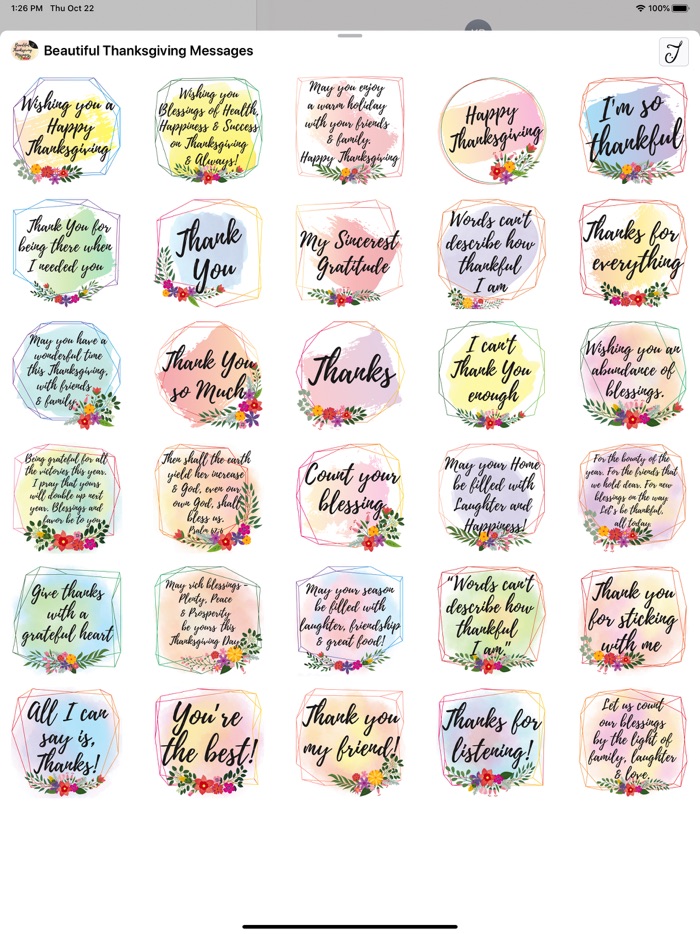 1:26 PM Thu Oct 22
100%
Beautiful Thanksgiving Messages
Wishing you a
Happy
Thanksgiving
Wishing you
Blessings of Health,
Happiness & Success
on Thanksgiving
& Always!
May you enjoy
a warm holiday
with your friends
& family.
Happy Thanksgiving
Happy
Thanksgiving
I'm so
thankful
Thank You for
being there when
I needed you
Thank
You
My Sincerest
Gratitude
Words can't
describe how
thankful
I am
Thanks for
everything
May you have a
wonderful time
this Thanksgiving,
with friends
& family
Thank You
so Much
Thanks
I can't
Thank You
enough
Wishing you an
abundance of
blessings.
Being grateful for all
the victories this year.
I pray that yours
will double up next
year. Blessings and
favor be to you
Then shall the earth
yield her increase
& God, even our
own God, shall
bless us.
Psalm 67:6
Count your
blessing
May your Home
be filled with
Laughter and
Happiness!
For the bounty of the
year. For the friends that
we hold dear. For new
blessings on the way.
Let's be thankful,
all today.
Give thanks
with a
grateful heart
May rich blessings -
Plenty, Peace
& Prosperity
be yours this
Thanksgiving Day
May your season
be filled with
laughter, friendship
& great food!
"Words can't
describe how
thankful
I am"
Thank you
for sticking
with me
All I can
say is,
Thanks!
You're
the best!
Thank you
my friend!
Thanks for
listening!
Let us count
our blessings
by the light of
family, laughter
& love.